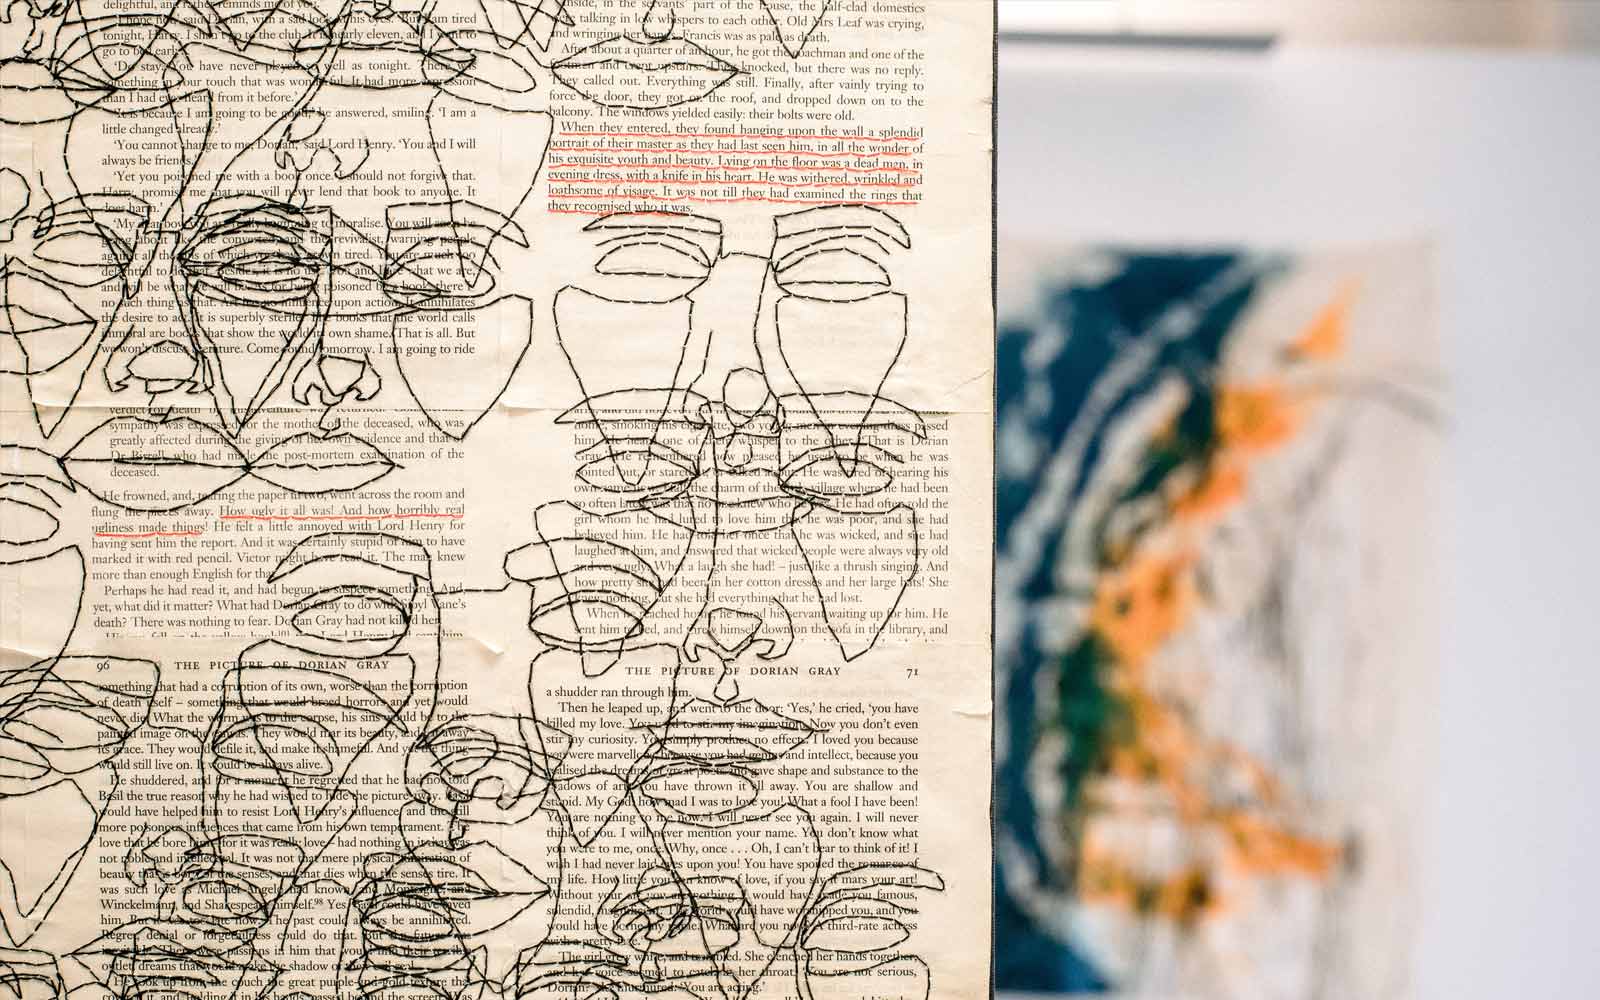 delightful, and rather reminds me of you.'
'I hope not,' said Dorian, with a sad look in his eyes. 'But I am tired
tonight, Harry. I shan't go to the club. It is nearly eleven, and I want to
go to bed early.'
'Do stay. You have never played so well as tonight. There was
something in your touch that was wonderful. It had more expression
than I had ever heard from it before.'
'It is because I am going to be good,' he answered, smiling. 'I am a
little changed already.'
'You cannot change to me, Dorian,' said Lord Henry. 'You and I will
always be friends.'
'Yet you poisoned me with a book once. I should not forgive that.
Harry, promise me that you will never lend that book to anyone. It
does harm.'
'My dear boy, you are really beginning to moralise. You will soon be
going about like the converted, and the revivalist, warning people
against all the sins of which you have grown tired. You are much too
delightful to do that. Besides, it is no use. You and I are what we are,
and will be what we will be. As for being poisoned by a book, there's
no such thing as that. Art has no influence upon action. It annihilates
the desire to act. It is superbly sterile. The books that the world calls
immoral are books that show the world its own shame. That is all. But
we won't discuss literature. Come round tomorrow. I am going to ride
verdict of death by misadventure was returned.
sympathy was expressed for the mother of the deceased, who was
greatly affected during the giving of her own evidence and that of
Dr Birrell, who had made the post-mortem examination of the
deceased.
He frowned, and, tearing the paper in two, went across the room and
flung the pieces away. How ugly it all was! And how horribly real
ugliness made things! He felt a little annoyed with Lord Henry for
having sent him the report. And it was certainly stupid of him to have
marked it with red pencil. Victor might have read it. The man knew
more than enough English for that.
Perhaps he had read it, and had begun to suspect something. And,
yet, what did it matter? What had Dorian Gray to do with Sibyl Vane's
death? There was nothing to fear. Dorian Gray had not killed her.
His eye fell on the yellow book that Lord Henry had sent him
96 THE PICTURE OF DORIAN GRAY
something that had a corruption of its own, worse than the corruption
of death itself – something that would breed horrors and yet would
never die. What the worm was to the corpse, his sins would be to the
painted image on the canvas. They would mar its beauty, and eat away
its grace. They would defile it, and make it shameful. And yet the thing
would still live on. It would be always alive.
He shuddered, and for a moment he regretted that he had not told
Basil the true reason why he had wished to hide the picture away. Basil
would have helped him to resist Lord Henry's influence, and the still
more poisonous influences that came from his own temperament. The
love that he bore him – for it was really love – had nothing in it that was
not noble and intellectual. It was not that mere physical admiration of
beauty that is born of the senses, and that dies when the senses tire. It
was such love as Michael Angelo had known, and Montaigne, and
Winckelmann, and Shakespeare himself.98 Yes, Basil could have saved
him. But it was too late now. The past could always be annihilated.
Regret, denial or forgetfulness could do that. But the future was
inevitable. There were passions in him that would find their terrible
outlet, dreams that would make the shadow of their evil real.
He took up from the couch the great purple-and-gold texture that
covered it, and, holding it in his hands, passed behind the screen. Was
Inside, in the servants' part of the house, the half-clad domestics
were talking in low whispers to each other. Old Mrs Leaf was crying,
and wringing her hands. Francis was as pale as death.
After about a quarter of an hour, he got the coachman and one of the
footmen and crept upstairs. They knocked, but there was no reply.
They called out. Everything was still. Finally, after vainly trying to
force the door, they got on the roof, and dropped down on to the
balcony. The windows yielded easily: their bolts were old.
When they entered, they found hanging upon the wall a splendid
portrait of their master as they had last seen him, in all the wonder of
his exquisite youth and beauty. Lying on the floor was a dead man, in
evening dress, with a knife in his heart. He was withered, wrinkled and
loathsome of visage. It was not till they had examined the rings that
they recognised who it was.
home, smoking his cigarette, two young men in evening dress passed
him. He heard one of them whisper to the other, 'That is Dorian
Gray.' He remembered how pleased he used to be when he was
pointed out, or stared at, or talked about. He was tired of hearing his
own name now. Half the charm of the little village where he had been
so often lately was that no one knew who he was. He had often told the
girl whom he had lured to love him that he was poor, and she had
believed him. He had told her once that he was wicked, and she had
laughed at him, and answered that wicked people were always very old
and very ugly. What a laugh she had! – just like a thrush singing. And
how pretty she had been in her cotton dresses and her large hats! She
knew nothing, but she had everything that he had lost.
When he reached home, he found his servant waiting up for him. He
sent him to bed, and threw himself down on the sofa in the library, and
THE PICTURE OF DORIAN GRAY 71
a shudder ran through him.
Then he leaped up, and went to the door: 'Yes,' he cried, 'you have
killed my love. You used to stir my imagination. Now you don't even
stir my curiosity. You simply produce no effect. I loved you because
you were marvellous, because you had genius and intellect, because you
realised the dreams of great poets and gave shape and substance to the
shadows of art. You have thrown it all away. You are shallow and
stupid. My God! how mad I was to love you! What a fool I have been!
You are nothing to me now. I will never see you again. I will never
think of you. I will never mention your name. You don't know what
you were to me, once. Why, once . . . Oh, I can't bear to think of it! I
wish I had never laid eyes upon you! You have spoiled the romance of
my life. How little you can know of love, if you say it mars your art!
Without your art you are nothing. I would have made you famous,
splendid, magnificent. The world would have worshipped you, and you
would have borne my name. What are you now? A third-rate actress
with a pretty face.'
The girl grew white, and trembled. She clenched her hands together,
and her voice seemed to catch in her throat. 'You are not serious,
Dorian?' she murmured. 'You are acting.'